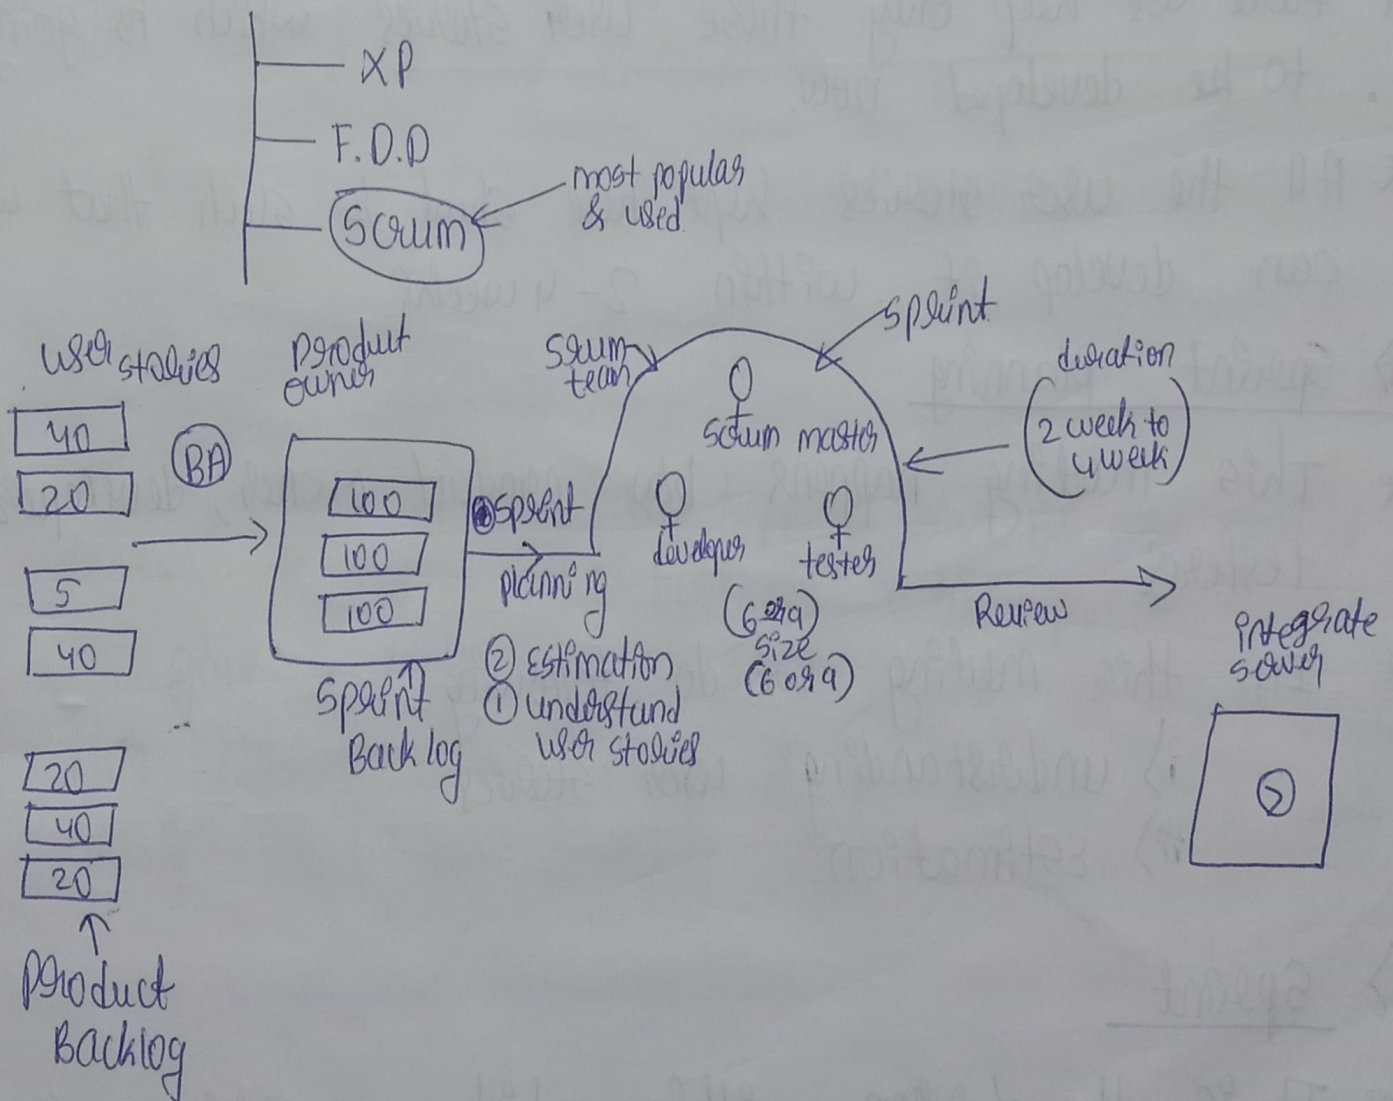 XP
F.D.D
Scrum
most popular
& used
user stories
Product
owner
40
20
BA
5
40
20
40
20
Product
Backlog
100
100
100
Sprint
Backlog
sprint
planning
② Estimation
① understand
user stories
Scrum
team
sprint
scrum master
developer
tester
(6 or 9)
size
(6 or 9)
duration
2 week to
4 week
Review
integrate
server